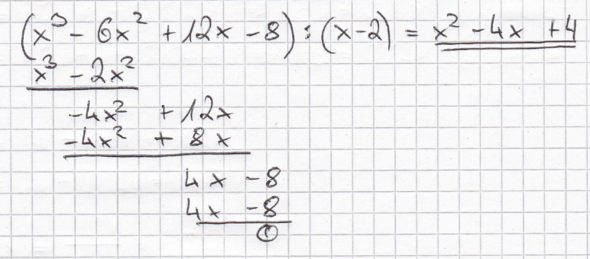 (x³ - 6x² + 12x - 8) : (x - 2) = x² - 4x + 4
x³ - 2x²
-4x² + 12x
-4x² + 8x
4x - 8
4x - 8
0